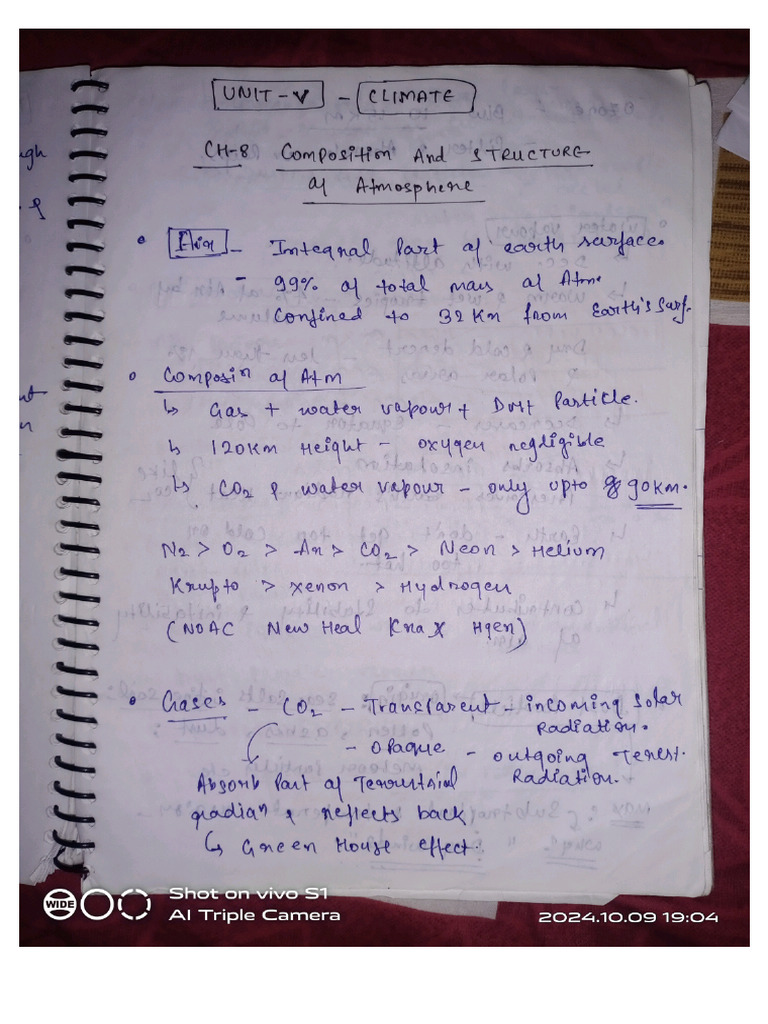 UNIT-V - CLIMATE
CH-8 Composition And STRUCTURE
of Atmosphere
• Air - Integral Part of earth surface.
- 99% of total mass of Atm.
confined to 32 Km from Earth's surf.
• Composin of Atm
↳ Gas + water vapour + Dust Particle.
↳ 120Km Height - oxygen negligible
↳ CO2 & water vapour - only upto 90 KM.
N2 > O2 > Ar > CO2 > Neon > Helium
Krypto > xenon > Hydrogen
(NOAC New Heal Kra X Hgen)
• Gases - CO2 - Transparent - incoming solar
Radiation.
- opaque - outgoing Terest.
Radiation.
Absorb Part of Terrestrial
radian & reflects back
↳ Green House effect.
ugh
&
n
WIDE
Shot on vivo S1
AI Triple Camera
2024.10.09 19:04